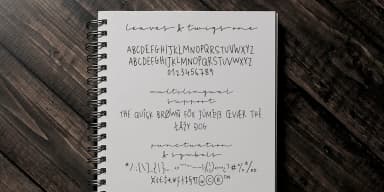 leaves & twigs one
ABCDEFGHIJKLMNOPQRSTUVWXYZ
ABCDEFGHIJKLMNOPQRSTUVWXYZ
0123456789
multilingual
support
THE QUÍCK BRØWÑ FÖX JÚMPS ŒVER THÈ
ŁÄZY DOG
punctuation
& symbols